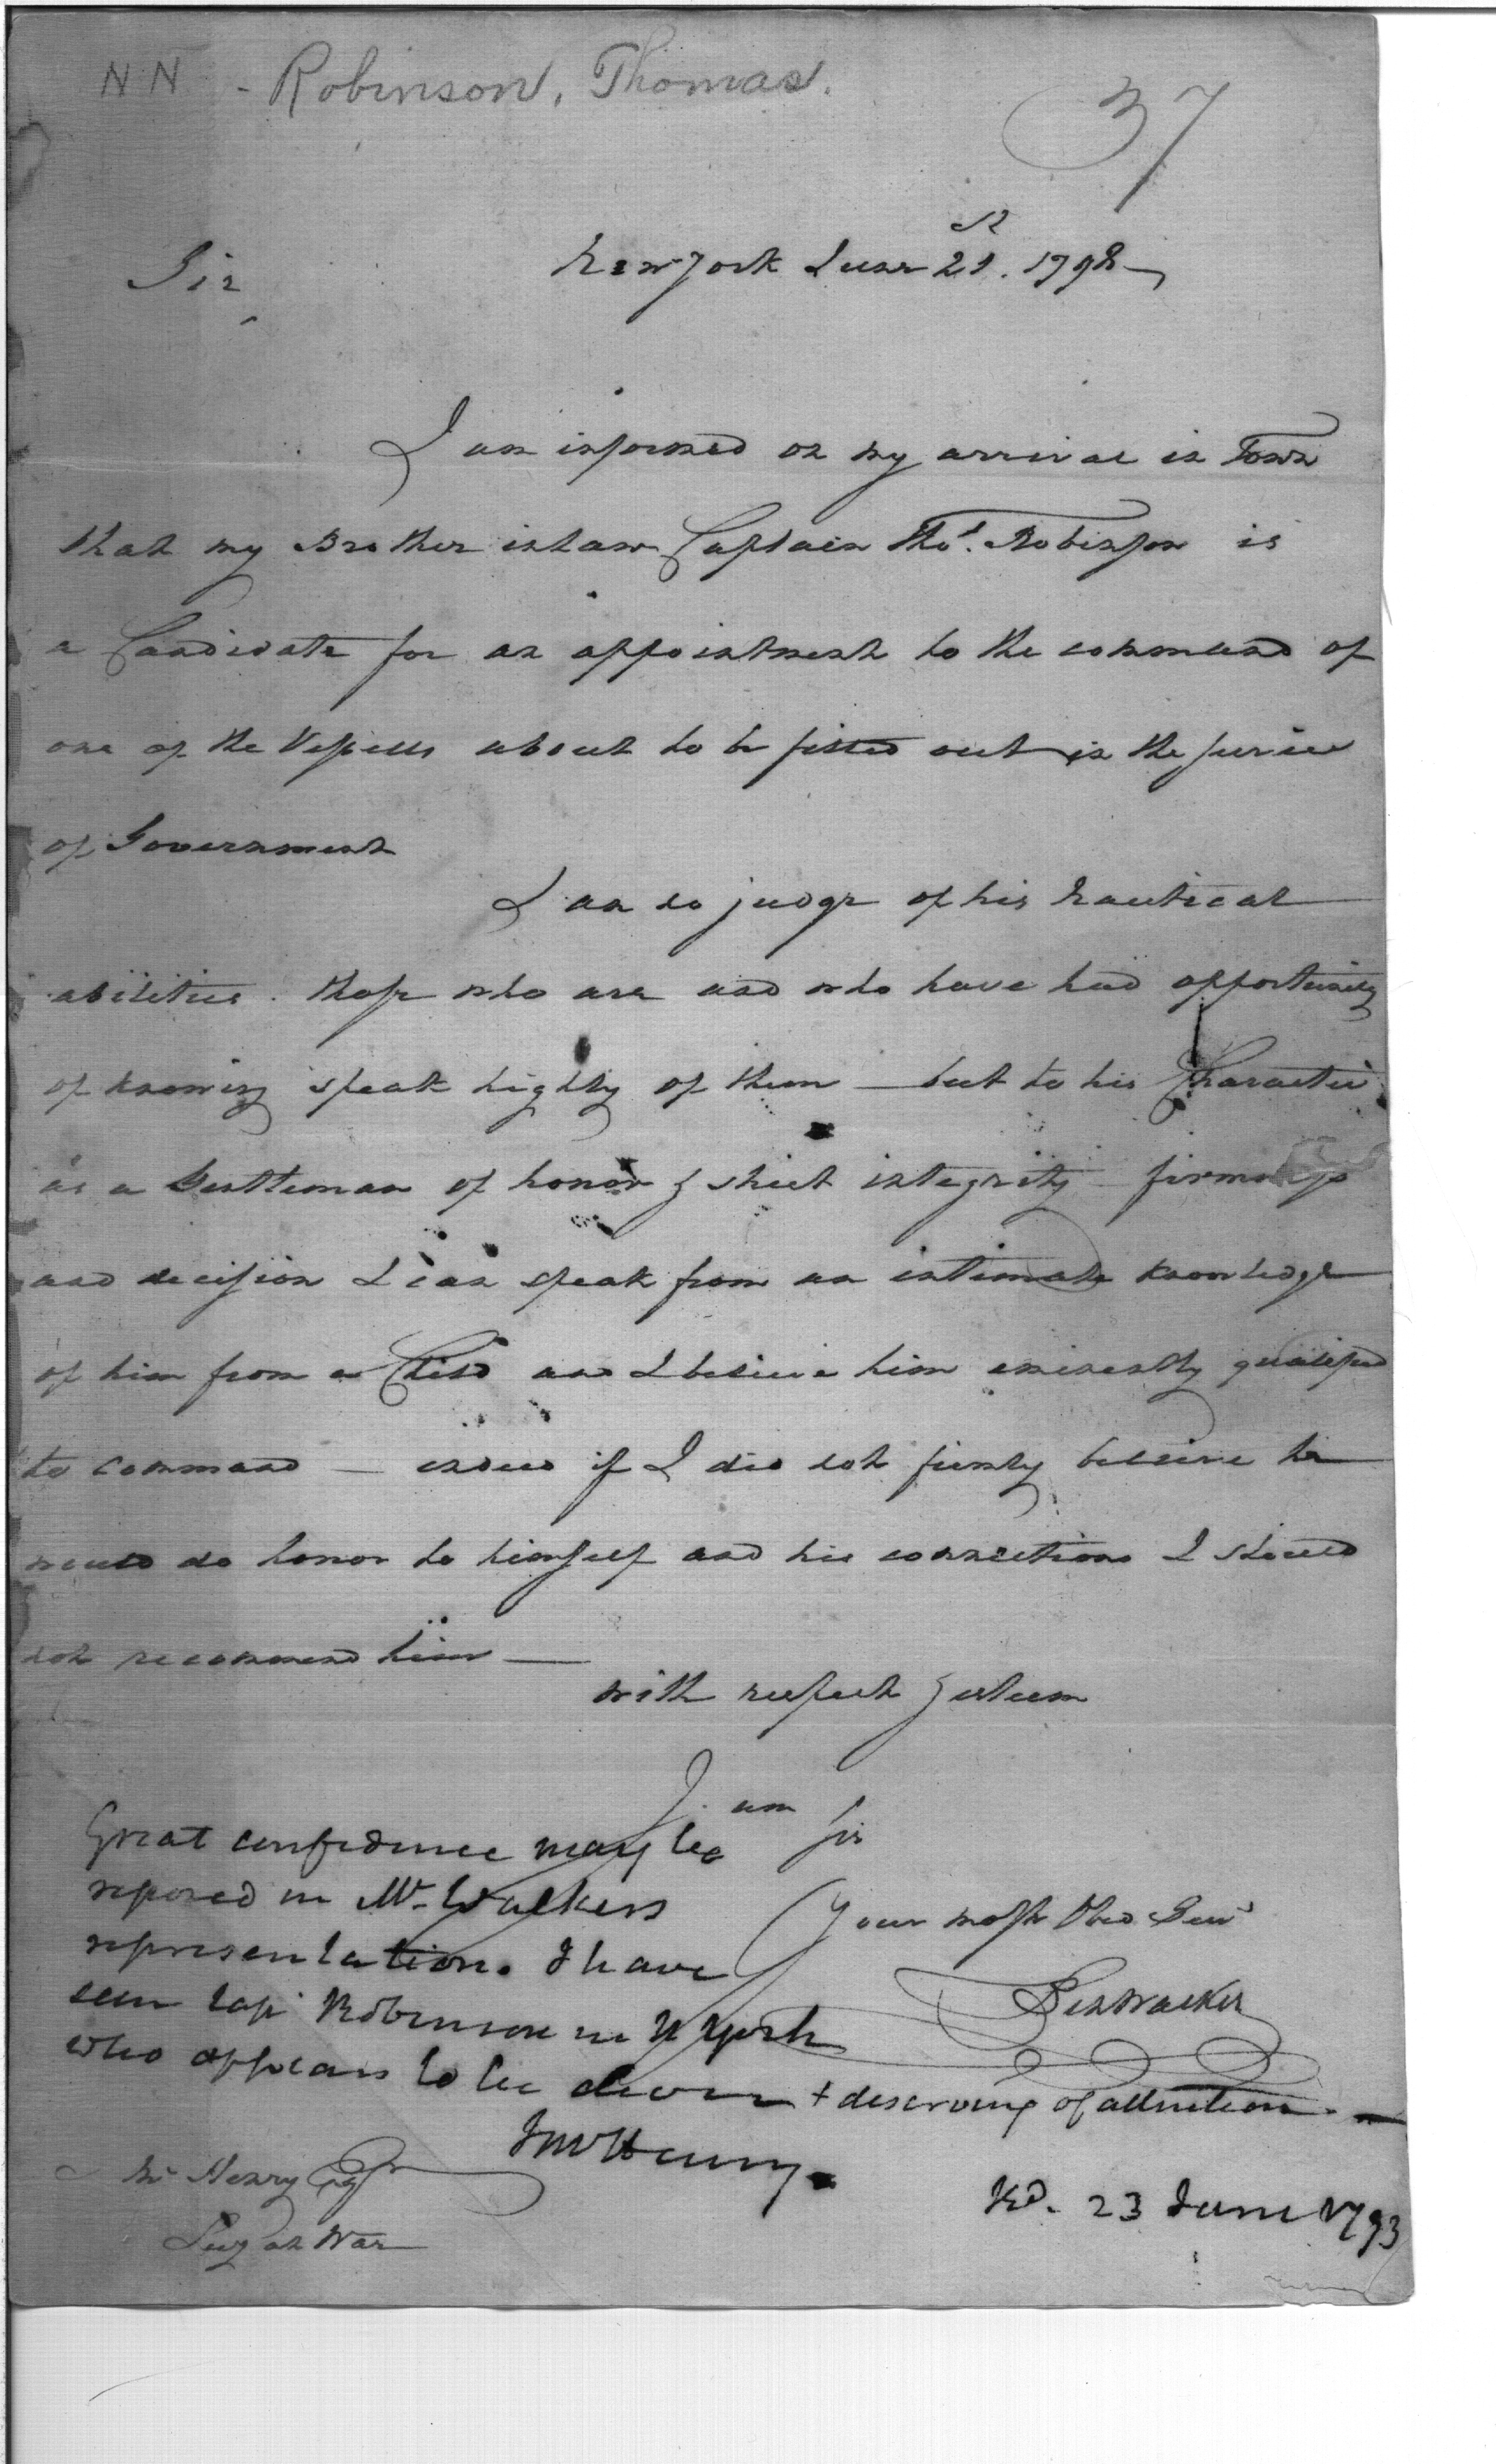 NN - Robinson, Thomas.
37
New York June 21st. 1798
Sir
I am informed on my arrival in Town
that my Brother in law Captain Thos. Robinson is
a Candidate for an appointment to the command of
one of the Vessells about to be fitted out in the service
of Government
I am no judge of his nautical
abilities. those who are and who have had opportunity
of knowing speak highly of them — but to his Character
as a Gentleman of honor & strict integrity firmness
and decision I can speak from an intimate knowledge
of him from a Child and I believe him eminently qualified
to command — indeed if I did not firmly believe he
would do honor to himself and his connections I should
not recommend him —
with respect & esteem
I am Sir
Your most Obed Servt
Ben Walker
Great confidence may be
reposed in Mr. Walkers
representation. I have
seen Capt Robinson in N York
who appears to be clever + deserving of attention. —
J McHenry.
Mc Henry Esqr
Secy at War
Rd. 23 June 1798